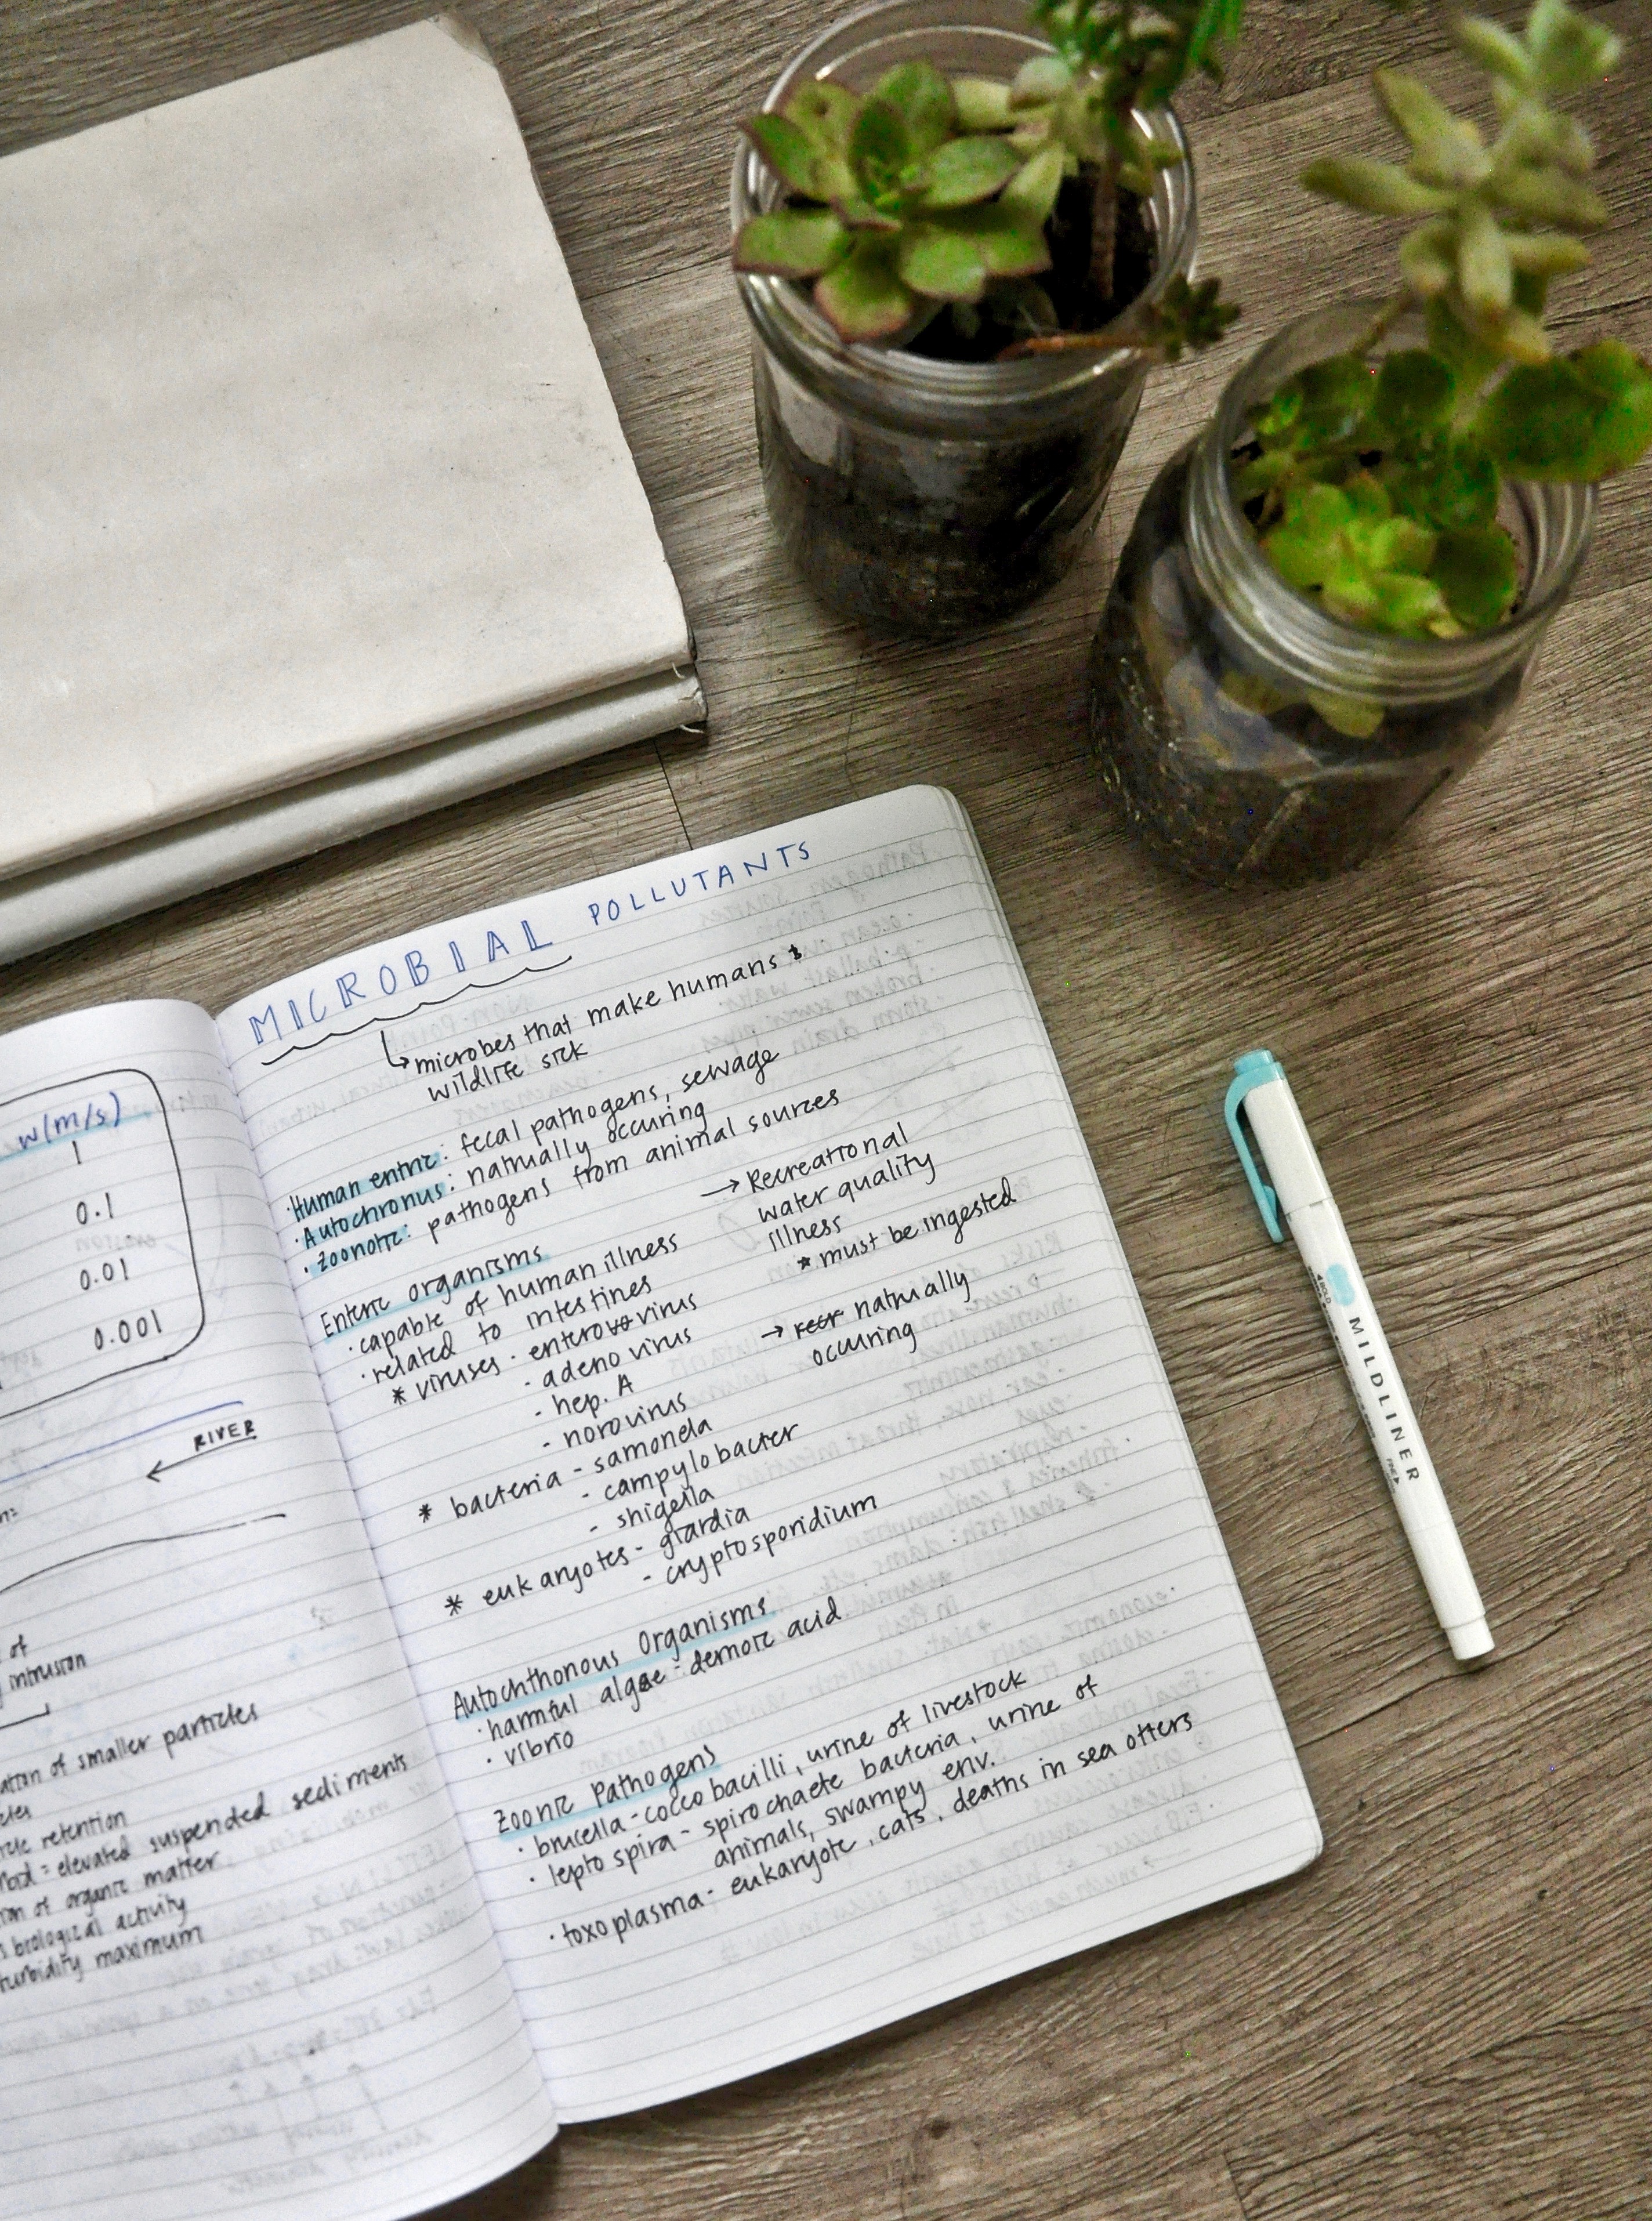 w(m/s)
1
0.1
0.01
0.001
RIVER
of
intrusion
of smaller particles
retention
= elevated suspended sediments
of organic matter
biological activity
turbidity maximum
MICROBIAL POLLUTANTS
↳ microbes that make humans &
wildlife sick
· Human enteric: fecal pathogens, sewage
· Autochronus: naturally occuring
· Zoonotic: pathogens from animal sources
Enteric organisms
· capable of human illness
· related to intestines
* viruses - enterovirus
- adeno virus
- hep. A
- norovirus
* bacteria - samonela
- campylobacter
- shigella
* eukaryotes - giardia
- cryptosporidium
→ Recreational
water quality
illness
* must be ingested
→ naturally
occuring
Autochthonous Organisms
· harmful algae - demoic acid
· vibrio
Zoonic Pathogens
· brucella - cocco bacilli, urine of livestock
· lepto spira - spirochaete bacteria, urine of
animals, swampy env.
· toxoplasma - eukaryote, cats, deaths in sea otters
MILDLINER